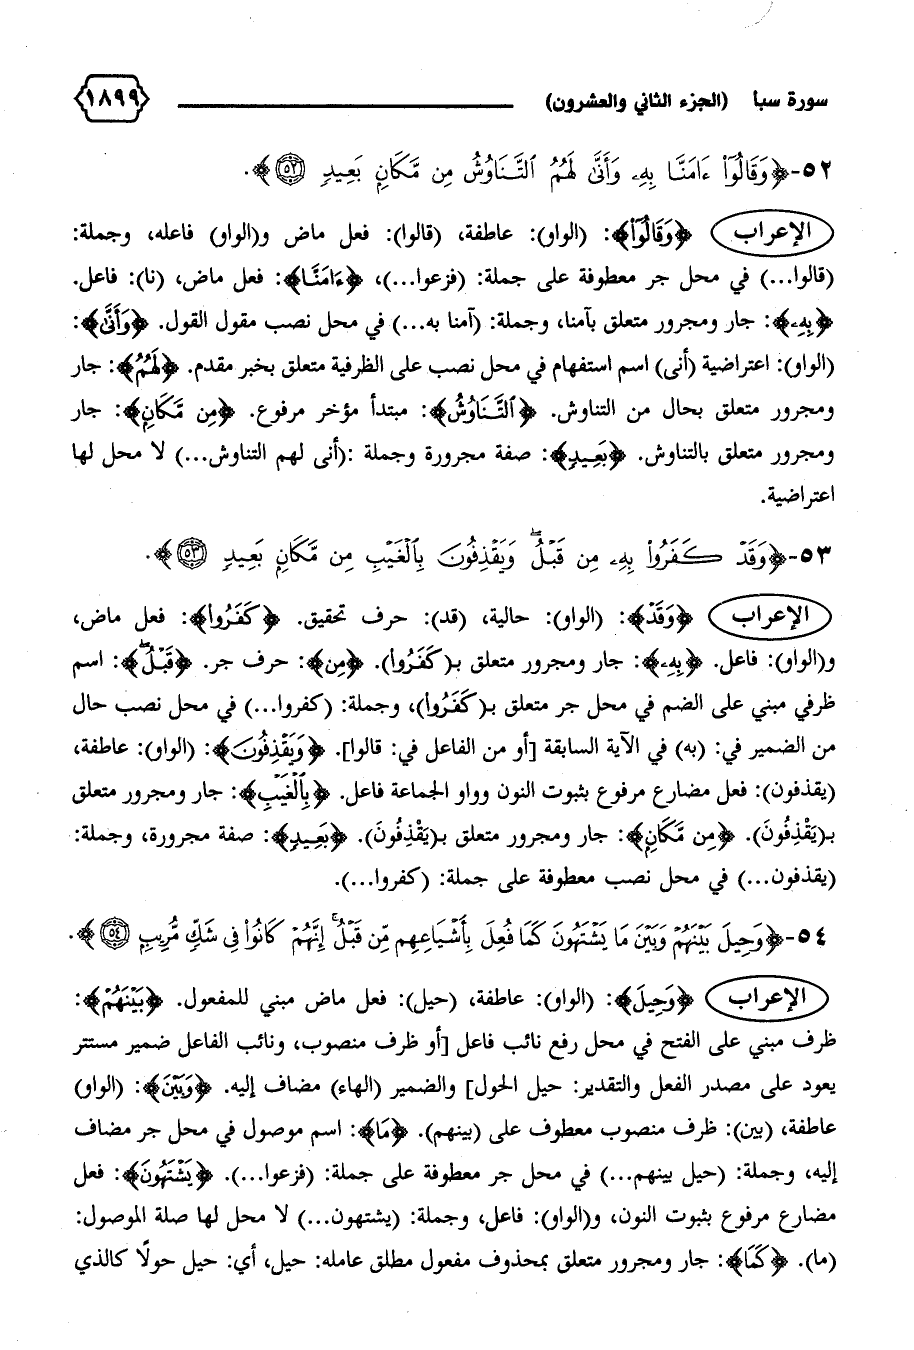 سورة سبأ (الجزء الثاني والعشرون) ١٨٩٩
٥٢- ﴿وَقَالُوٓا۟ ءَامَنَّا بِهِۦ وَأَنَّىٰ لَهُمُ ٱلتَّنَاوُشُ مِن مَّكَانٍۭ بَعِيدٍ ٥٢﴾.
الإعراب ﴿وَقَالُوٓا۟﴾: (الواو): عاطفة، (قالوا): فعل ماض و(الواو) فاعله، وجملة:
(قالوا...) في محل جر معطوفة على جملة: (فزعوا...)، ﴿ءَامَنَّا﴾: فعل ماض، (نا): فاعل.
﴿بِهِۦ﴾: جار ومجرور متعلق بآمنا، وجملة: (آمنا به...) في محل نصب مقول القول. ﴿وَأَنَّىٰ﴾:
(الواو): اعتراضية (أنى) اسم استفهام في محل نصب على الظرفية متعلق بخبر مقدم. ﴿لَهُمُ﴾: جار
ومجرور متعلق بحال من التناوش. ﴿ٱلتَّنَاوُشُ﴾: مبتدأ مؤخر مرفوع. ﴿مِن مَّكَانٍۭ﴾: جار
ومجرور متعلق بالتناوش. ﴿بَعِيدٍ﴾: صفة مجرورة وجملة :(أنى لهم التناوش...) لا محل لها
اعتراضية.
٥٣- ﴿وَقَدْ كَفَرُوا۟ بِهِۦ مِن قَبْلُ ۖ وَيَقْذِفُونَ بِٱلْغَيْبِ مِن مَّكَانٍۭ بَعِيدٍ ٥٣﴾.
الإعراب ﴿وَقَدْ﴾: (الواو): حالية، (قد): حرف تحقيق. ﴿كَفَرُوا۟﴾: فعل ماض،
و(الواو): فاعل. ﴿بِهِۦ﴾: جار ومجرور متعلق بـ(كَفَرُوا). ﴿مِن﴾: حرف جر. ﴿قَبْلُ ۖ﴾: اسم
ظرفي مبني على الضم في محل جر متعلق بـ(كَفَرُوا)، وجملة: (كفروا...) في محل نصب حال
من الضمير في: (به) في الآية السابقة [أو من الفاعل في: قالوا]. ﴿وَيَقْذِفُونَ﴾: (الواو): عاطفة،
(يقذفون): فعل مضارع مرفوع بثبوت النون وواو الجماعة فاعل. ﴿بِٱلْغَيْبِ﴾: جار ومجرور متعلق
بـ(يَقْذِفُونَ). ﴿مِن مَّكَانٍۭ﴾: جار ومجرور متعلق بـ(يَقْذِفُونَ). ﴿بَعِيدٍ﴾: صفة مجرورة، وجملة:
(يقذفون...) في محل نصب معطوفة على جملة: (كفروا...).
٥٤- ﴿وَحِيلَ بَيْنَهُمْ وَبَيْنَ مَا يَشْتَهُونَ كَمَا فُعِلَ بِأَشْيَاعِهِم مِّن قَبْلُ ۚ إِنَّهُمْ كَانُوا۟ فِى شَكٍّ مُّرِيبٍۭ ٥٤﴾.
الإعراب ﴿وَحِيلَ﴾: (الواو): عاطفة، (حيل): فعل ماض مبني للمفعول. ﴿بَيْنَهُمْ﴾:
ظرف مبني على الفتح في محل رفع نائب فاعل [أو ظرف منصوب، ونائب الفاعل ضمير مستتر
يعود على مصدر الفعل والتقدير: حيل الحول] والضمير (الهاء) مضاف إليه. ﴿وَبَيْنَ﴾: (الواو)
عاطفة، (بين): ظرف منصوب معطوف على (بينهم). ﴿مَا﴾: اسم موصول في محل جر مضاف
إليه، وجملة: (حيل بينهم...) في محل جر معطوفة على جملة: (فزعوا...). ﴿يَشْتَهُونَ﴾: فعل
مضارع مرفوع بثبوت النون، و(الواو): فاعل، وجملة: (يشتهون...) لا محل لها صلة الموصول:
(ما). ﴿كَمَا﴾: جار ومجرور متعلق بمحذوف مفعول مطلق عامله: حيل، أي: حيل حولًا كالذي